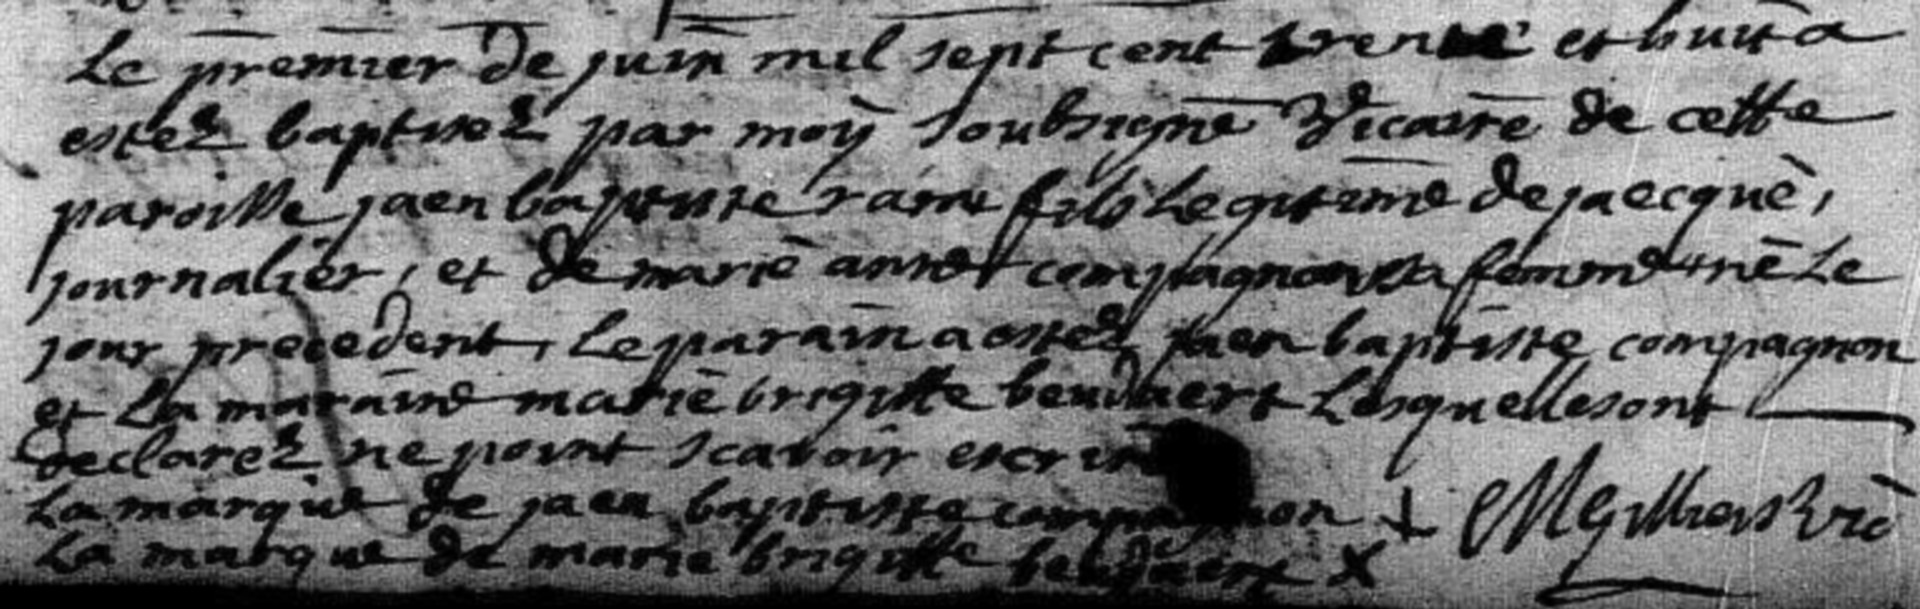 Le premier de juin mil sept cent trente et huit a
estez baptisez par moy soubsigné Vicaire de cette
paroisse jaen baptiste rame fils Legitime de jaecque,
journalier, et de marie anne compagnon sa femme né Le
jour precedent, Le parain a estez jaen baptiste compagnon
et La maraine marie brigitte beudaert Lesquelles ont
declarez ne point scavoir escrire
La marque de jaen baptiste compagnon +
La marque de marie brigitte beudaert X